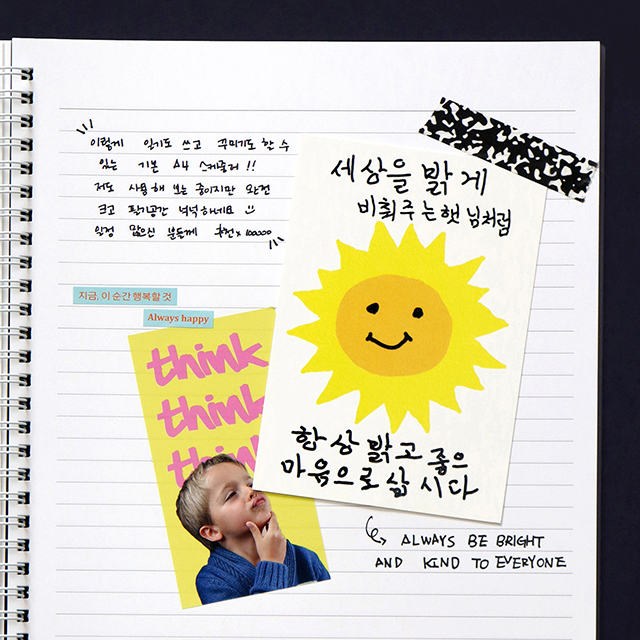 이렇게 일기도 쓰고 꾸미기도 할 수
있는 기본 A4 스케줄러 !!
저도 사용해 보는 중이지만 완전
크고 필기공간 넉넉하네요
일정 많으신 분들께 추천 x 100000
세상을 밝게
비춰주는 햇님처럼
항상 밝고 좋은
마음으로 삽시다
지금, 이 순간 행복할 것
Always happy
think
think
think
ALWAYS BE BRIGHT
AND KIND TO EVERYONE